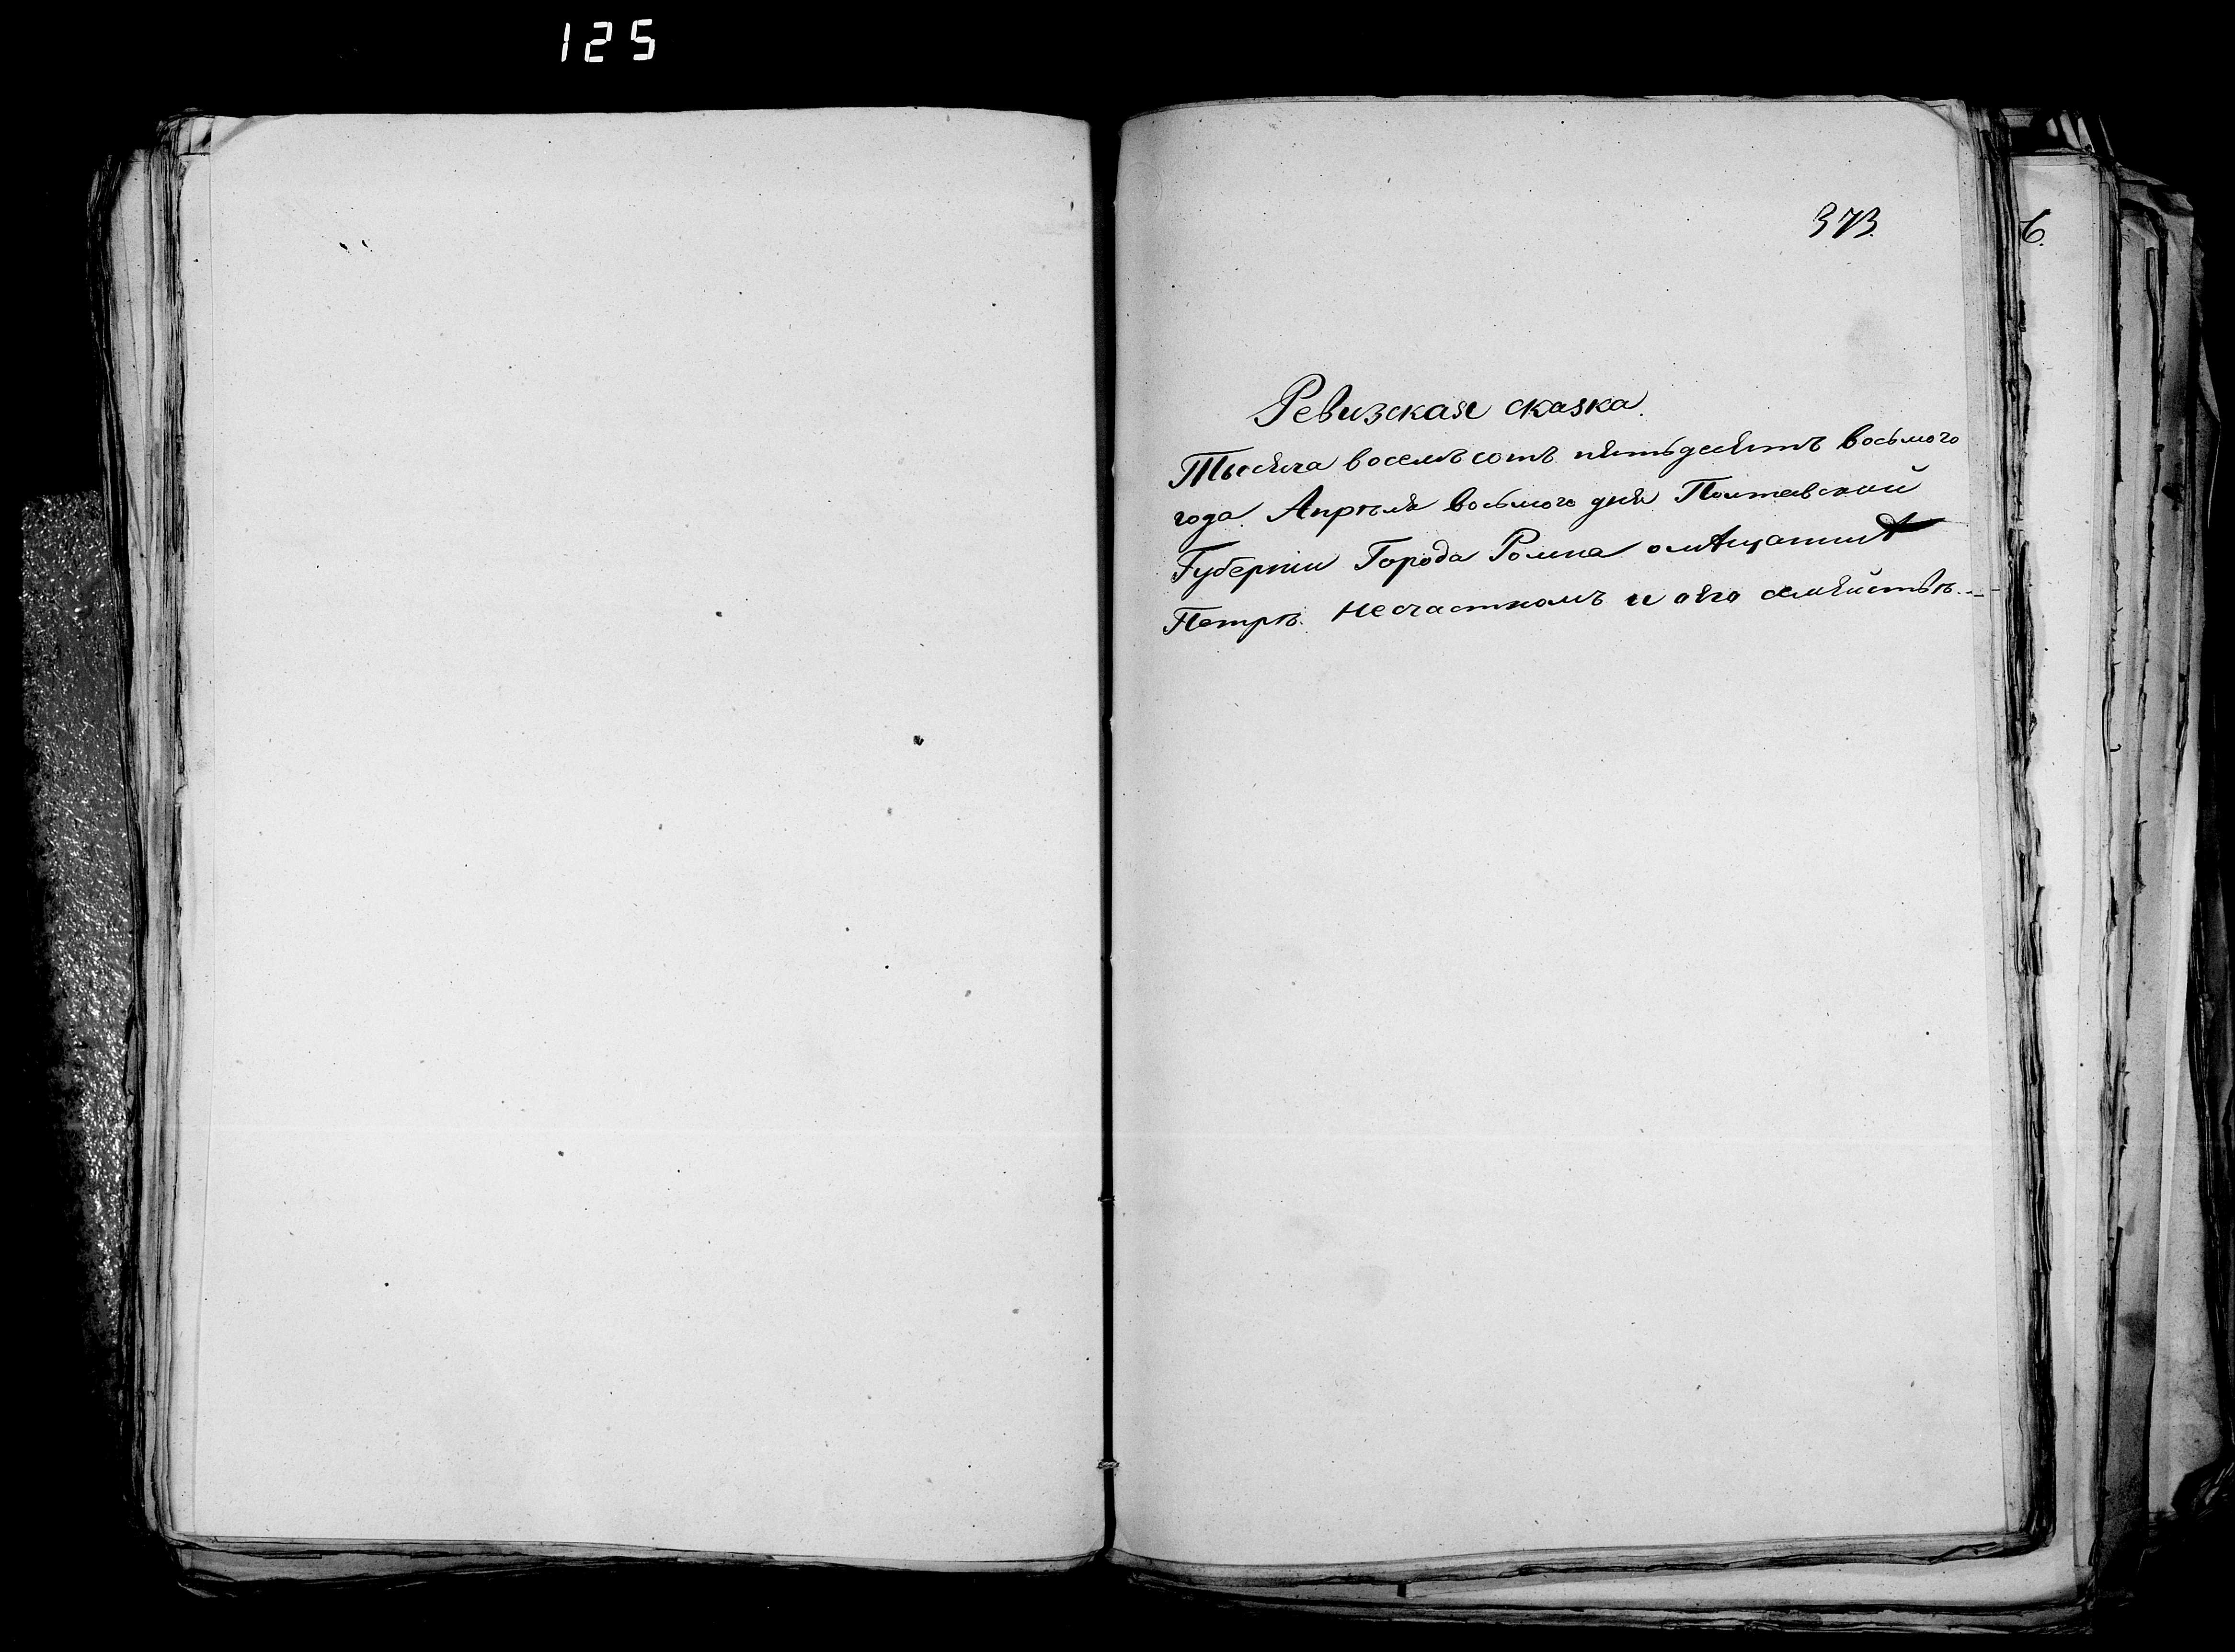 125
373.
6.
Ревизская сказка.
Тысяча восемьсотъ пятьдесятъ восьмого
года Апрѣля восьмого дня Полтавской
Губерніи Города Ромна омѣщанинѣ
Петрѣ Несчастномъ и его семействѣ.